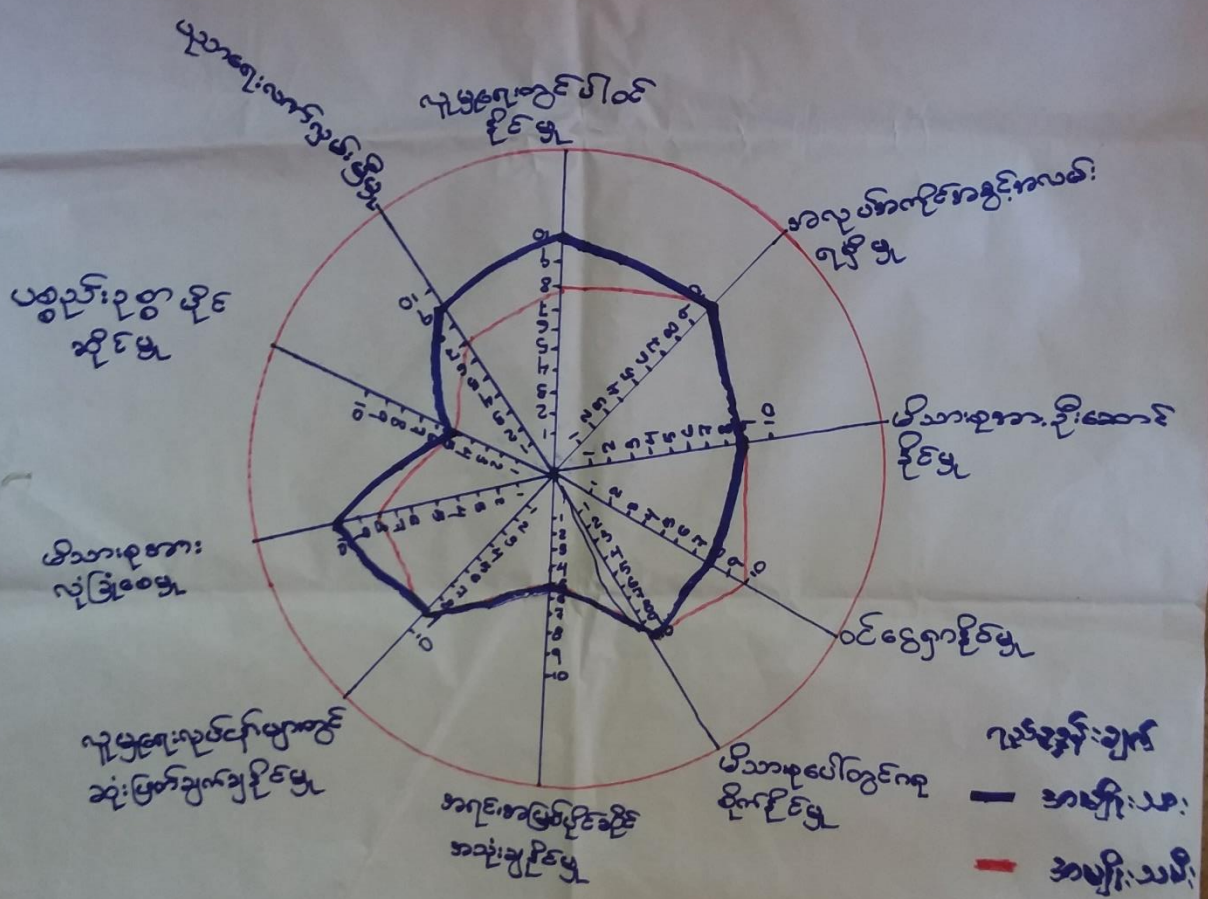 ပညာရေးလက်လှမ်းမှီမှု
လူမှုရေးတွင်ပါဝင်
နိုင်မှု
အလုပ်အကိုင်အခွင့်အလမ်း
ရရှိမှု
မိသားစုအား ဦးဆောင်
နိုင်မှု
ဝင်ငွေရှာနိုင်မှု
မိသားစုပေါ်တွင်ဂရု
စိုက်နိုင်မှု
အရင်းအမြစ်ပိုင်ဆိုင်
အသုံးချနိုင်မှု
လူမှုရေးလုပ်ငန်းများတွင်
ဆုံးဖြတ်ချက်ချနိုင်မှု
မိသားစုအား
လုံခြုံစေမှု
ပစ္စည်းဥစ္စာပိုင်
ဆိုင်မှု
ရည်ညွှန်းချက်
အမျိုးသား
အမျိုးသမီး